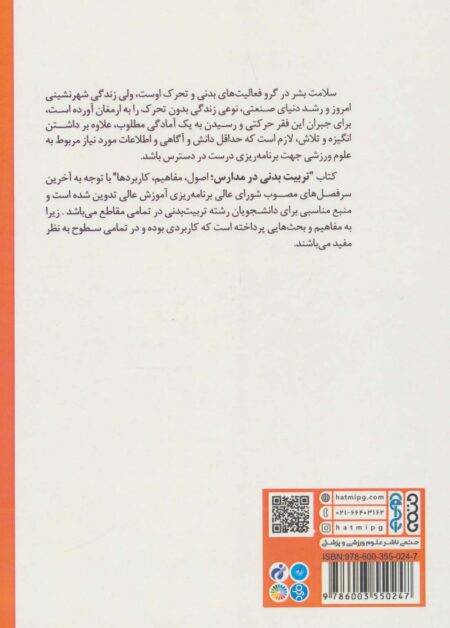 سلامت بشر در گرو فعالیت‌های بدنی و تحرک اوست، ولی زندگی شهرنشینی
امروز و رشد دنیای صنعتی، نوعی زندگی بدون تحرک را به ارمغان آورده است،
برای جبران این فقر حرکتی و رسیدن به یک آمادگی مطلوب، علاوه بر داشتن
انگیزه و تلاش، لازم است که حداقل دانش و آگاهی و اطلاعات مورد نیاز مربوط به
علوم ورزشی جهت برنامه‌ریزی درست در دسترس باشد.
کتاب "تربیت بدنی در مدارس؛ اصول، مفاهیم، کاربردها" با توجه به آخرین
سرفصل‌های مصوب شورای عالی برنامه‌ریزی آموزش عالی تدوین شده است و
منبع مناسبی برای دانشجویان رشته تربیت‌بدنی در تمامی مقاطع می‌باشد. زیرا
به مفاهیم و بحث‌هایی پرداخته است که کاربردی بوده و در تمامی سطوح به نظر
مفید می‌باشند.
hatmipg.com
۰۲۱-۶۶۴۰۳۱۶۲
hatmipg
حتمی
حتمی ناشر علوم ورزشی و پزشکی
ISBN:978-600-355-024-7
9 786003 550247